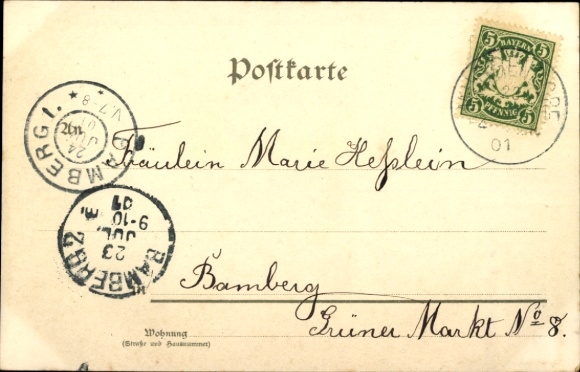 Postkarte
5 BAYERN 5
5 PFENNIG 5
01
BAMBERG I.
24
V.7-8
Fräulein Marie Hesslein
BAMBERG 2
23
JUL.
9-10
01
Bamberg
Grüner Markt No 8.
Wohnung
(Straße und Hausnummer)